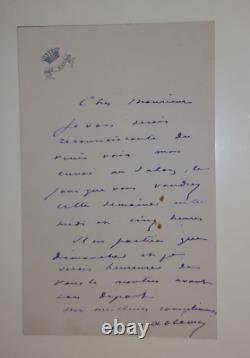 Cher Monsieur
Je vous serais
reconnaissante de
venir voir mon
envoi au Salon, le
jour que vous voudrez
cette semaine entre
midi et cinq heures
Il ne partira que
dimanche et je
serais heureuse de
vous le montrer avant
son départ
mes meilleurs compliments